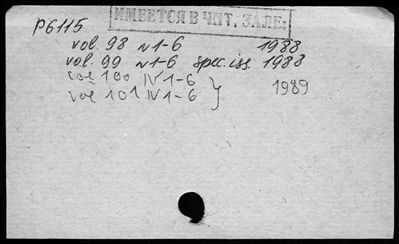 ИМЕЕТСЯ В ЧИТ. ЗАЛЕ:
P6115
vol. 98 N1-6 1988
vol. 99 N1-6 spec.iss. 1988
vol 100 N1-6
1989
vol 101 N1-6